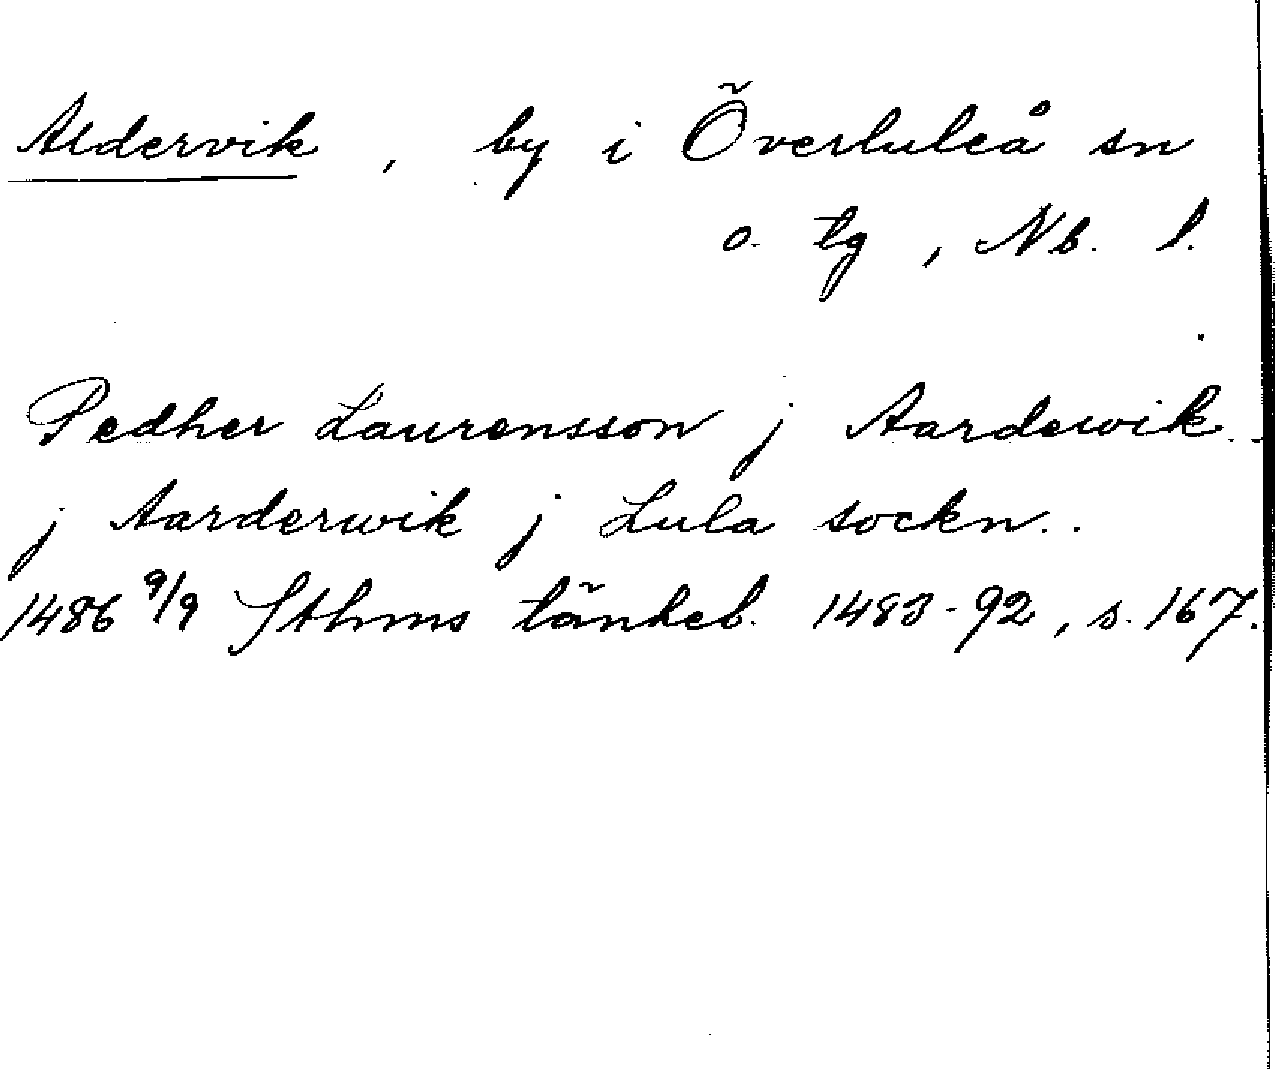 Aldervik, by i Överluleå sn
o. tg, Nb. l.
Pedher Laurensson j Aardewik..
j Aarderwik j Lula sockn..
1486 9/9 Sthms tänkeb. 1483-92, s. 167.